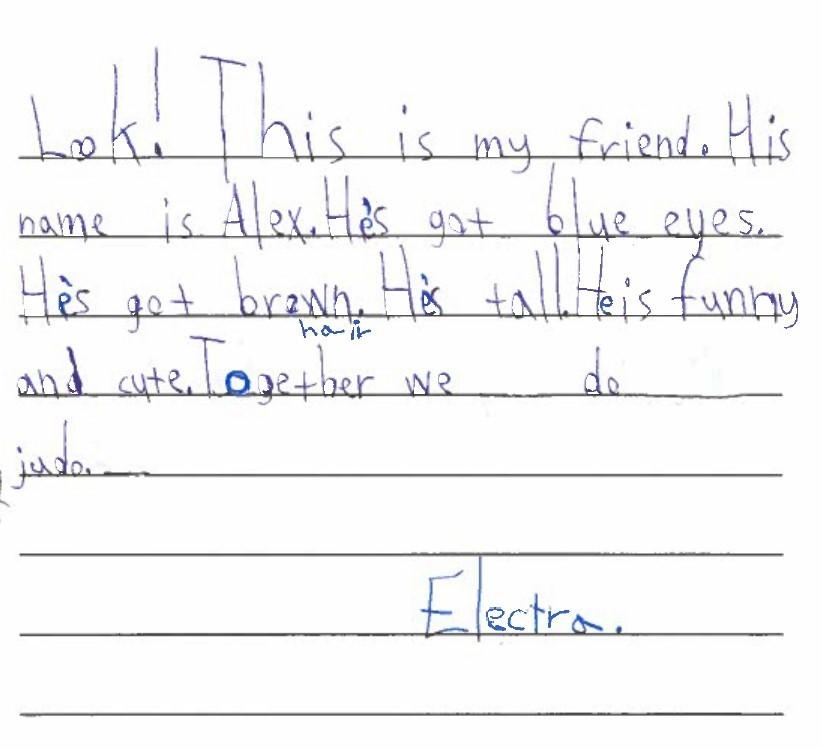 Look! This is my friend. His
name is Alex. He's got blue eyes.
He's got brown. He's tall. He is funny
hair
and cute. Together we do
judo.
Electra.